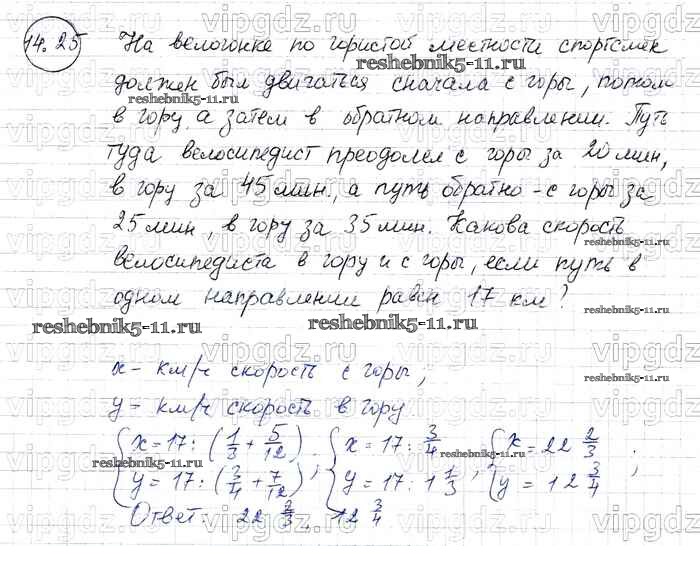 14.25 На велогонке по гористой местности спортсмен
должен был двигаться сначала с горы, потом
в гору, а затем в обратном направлении. Путь
туда велосипедист преодолел с горы за 20 мин,
в гору за 45 мин., а путь обратно - с горы за
25 мин, в гору за 35 мин. Какова скорость
велосипедиста в гору и с горы, если путь в
одном направлении равен 17 км?
x - км/ч скорость с горы;
y - км/ч скорость в гору
{ x = 17 : (1/3 + 5/12) ; { x = 17 : 3/4 ; { x = 22 2/3 ;
{ y = 17 : (3/4 + 7/12) ; { y = 17 : 1 1/3 ; { y = 12 3/4 ;
Ответ: 22 2/3, 12 3/4
vipgdz.com
reshebnik5-11.ru